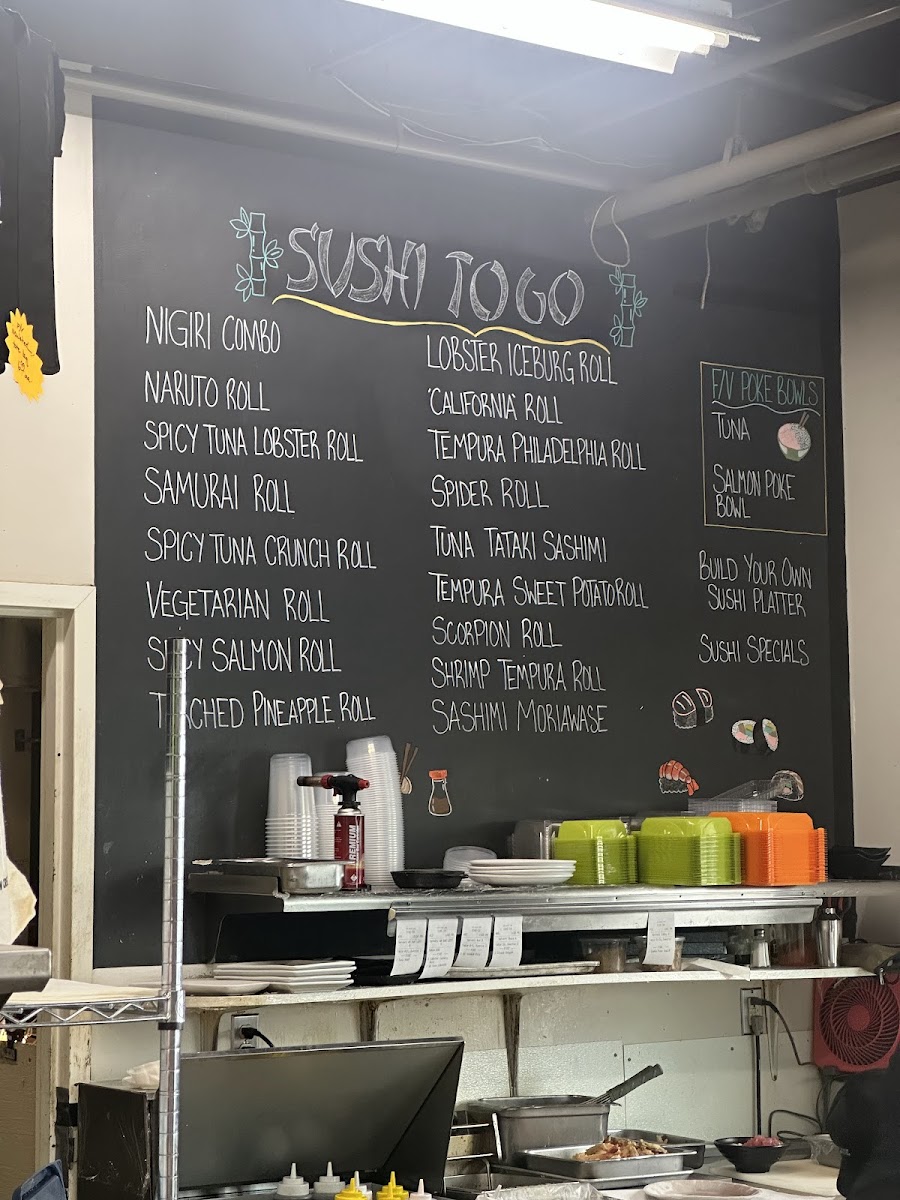 SUSHI TO GO
NIGIRI COMBO
NARUTO ROLL
SPICY TUNA LOBSTER ROLL
SAMURAI ROLL
SPICY TUNA CRUNCH ROLL
VEGETARIAN ROLL
SPICY SALMON ROLL
TORCHED PINEAPPLE ROLL
LOBSTER ICEBURG ROLL
"CALIFORNIA" ROLL
TEMPURA PHILADELPHIA ROLL
SPIDER ROLL
TUNA TATAKI SASHIMI
TEMPURA SWEET POTATO ROLL
SCORPION ROLL
SHRIMP TEMPURA ROLL
SASHIMI MORIAWASE
F/V POKE BOWLS
TUNA
SALMON POKE
BOWL
BUILD YOUR OWN
SUSHI PLATTER
SUSHI SPECIALS